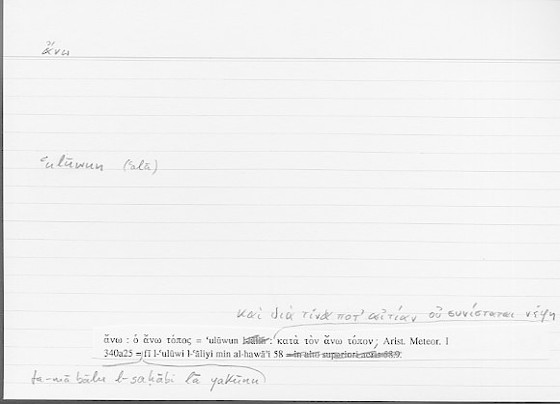 ἄνω
ʿulūwun (ʿalā)
καὶ διὰ τίνα ποτ' αἰτίαν οὐ συνίσταται νέφη
ἄνω : ὁ ἄνω τόπος = ʿulūwun : κατὰ τὸν ἄνω τόπον; Arist. Meteor. I
340a25 = fī l-ʿulūwi l-ʿāliyi min al-hawāʾi 58 = in alto superiori aeris 68.9.
fa-mā bālu l-saḥābi lā yakūnu